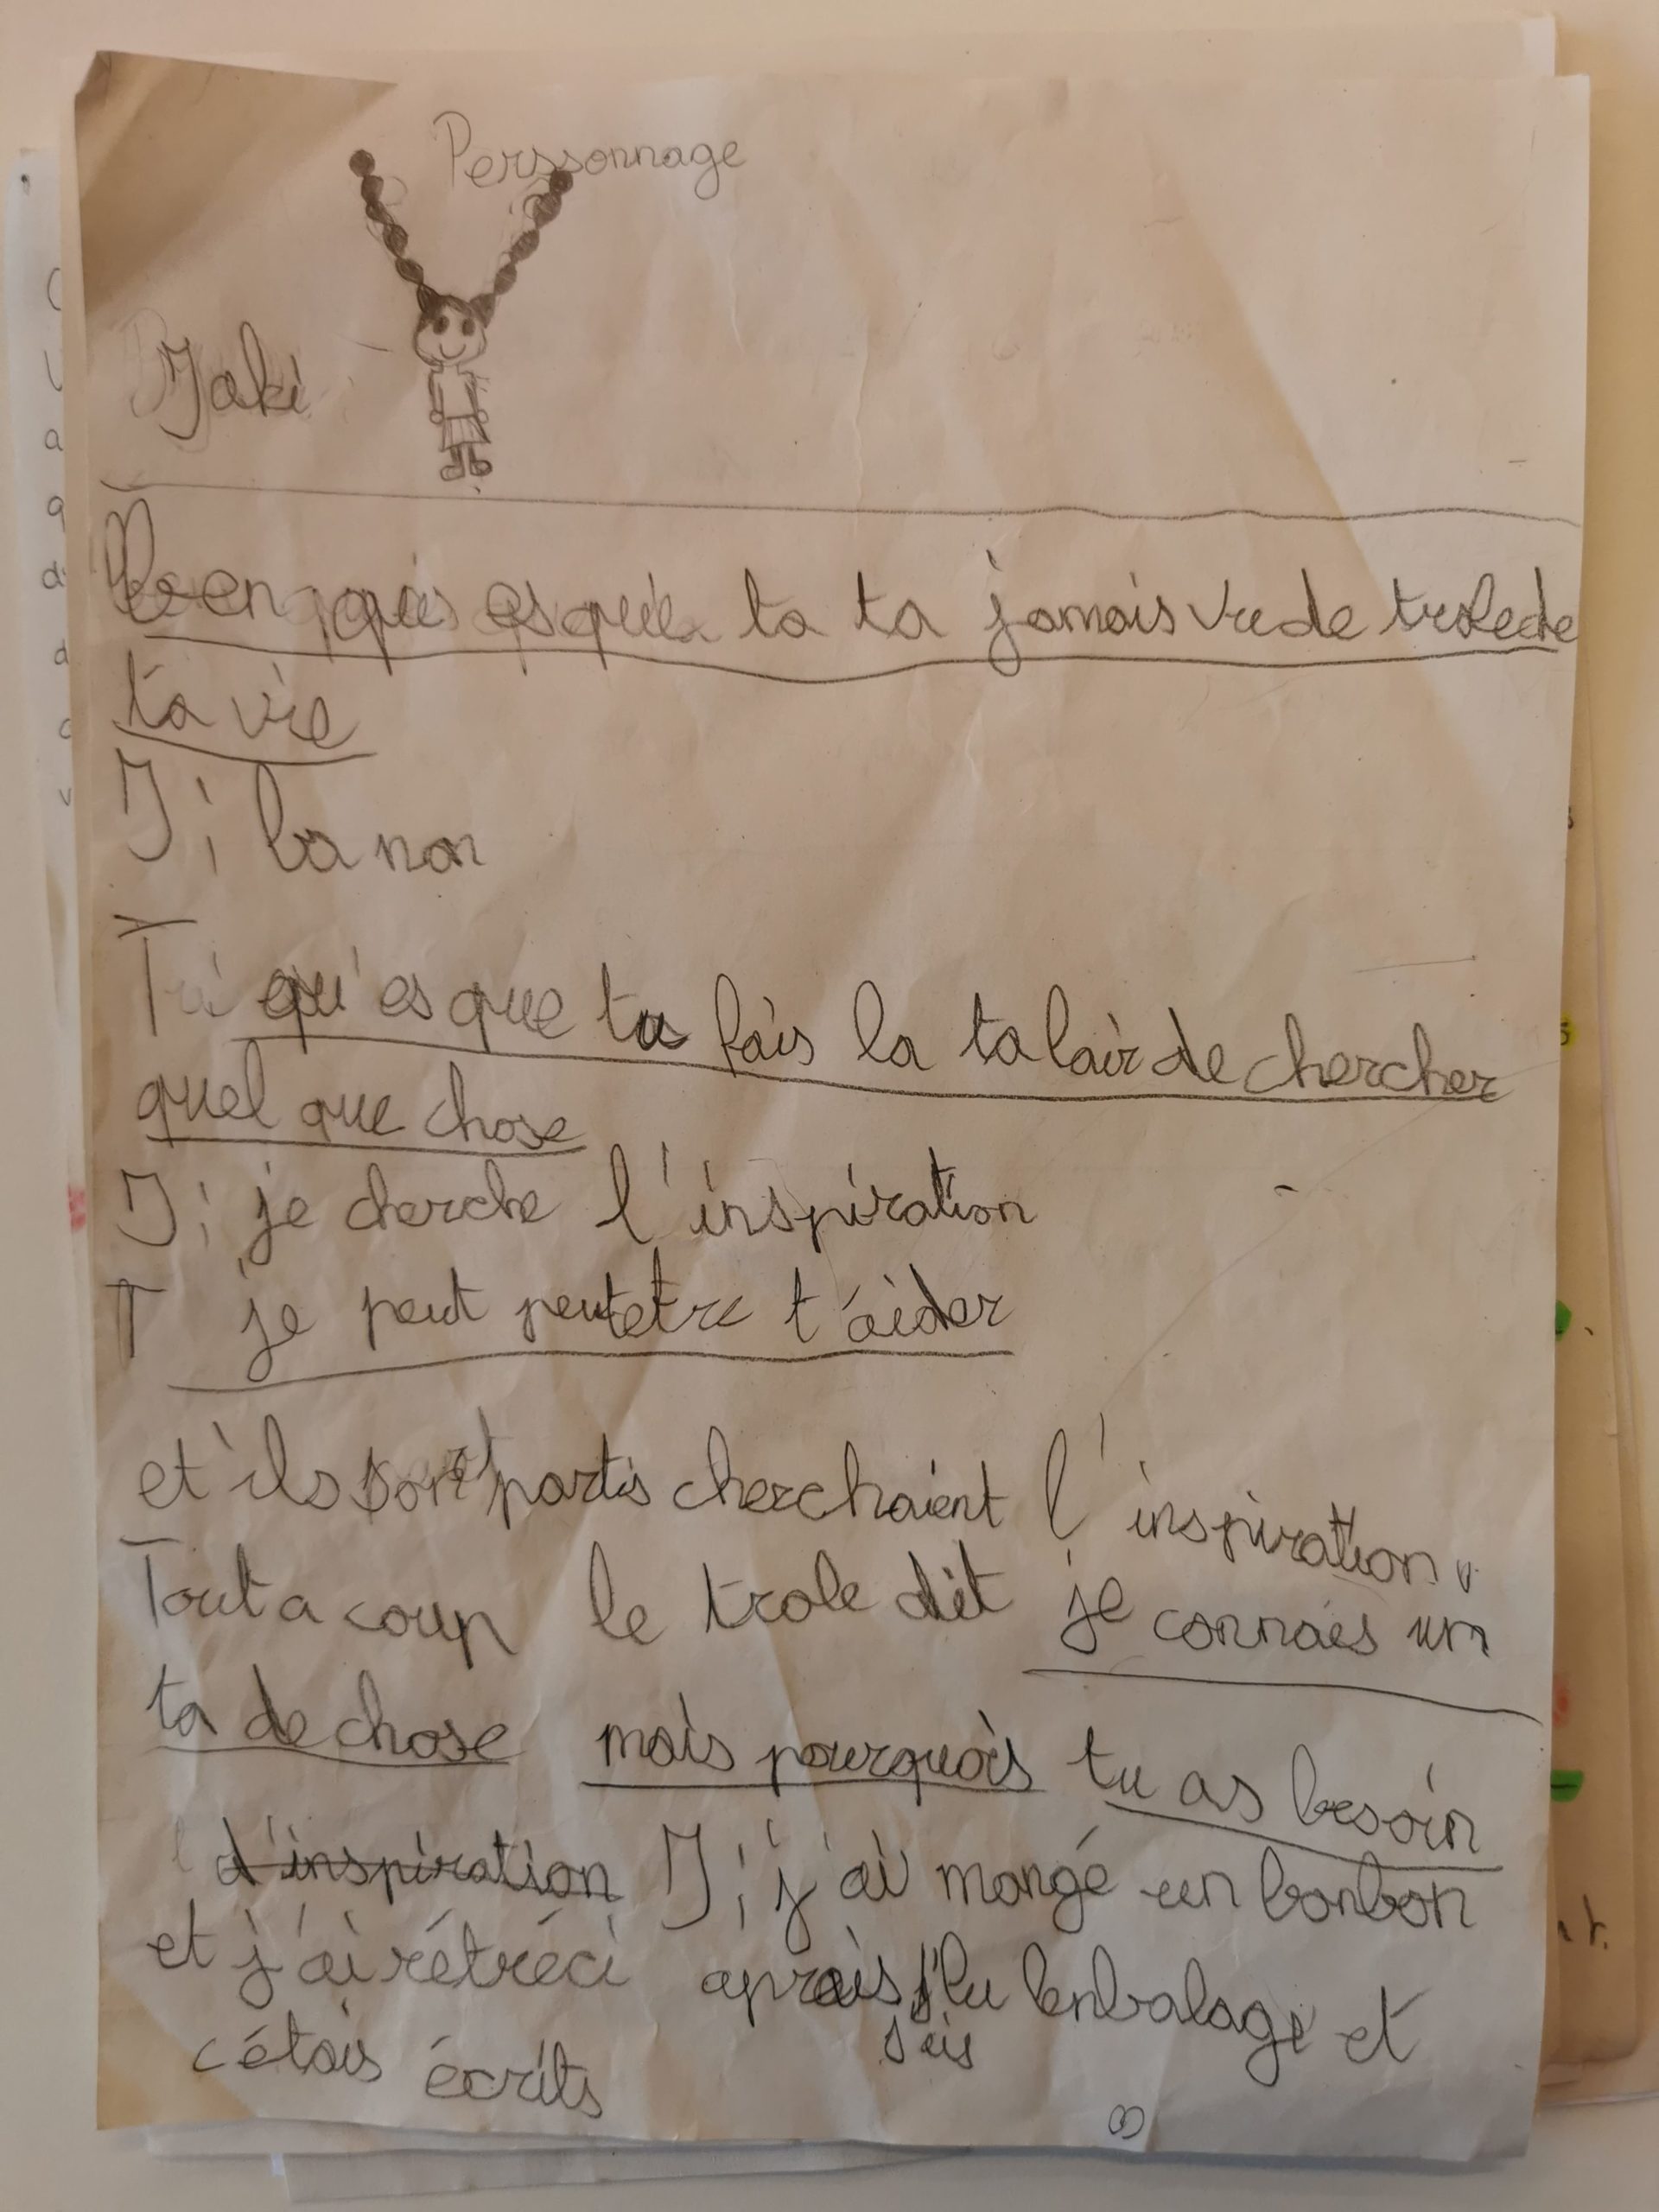 Perssonnage
Jaki
Ben qu'es que ta ta jamais vu de trole de
ta vie
J: ba non
T: qu'es que tu fais la ta lair de chercher
quel que chose
J: je cherche l'inspiration
T je peut peutetre t'aider
et ils sont partis cherchaient l'inspiration.
Tout a coup le trole dit je connais un
ta de chose mais pourquois tu as besoin
d'inspiration J: j'ai mangé un bonbon
et j'ai rétréci après j'lu lenbalage et
c'étais écrits